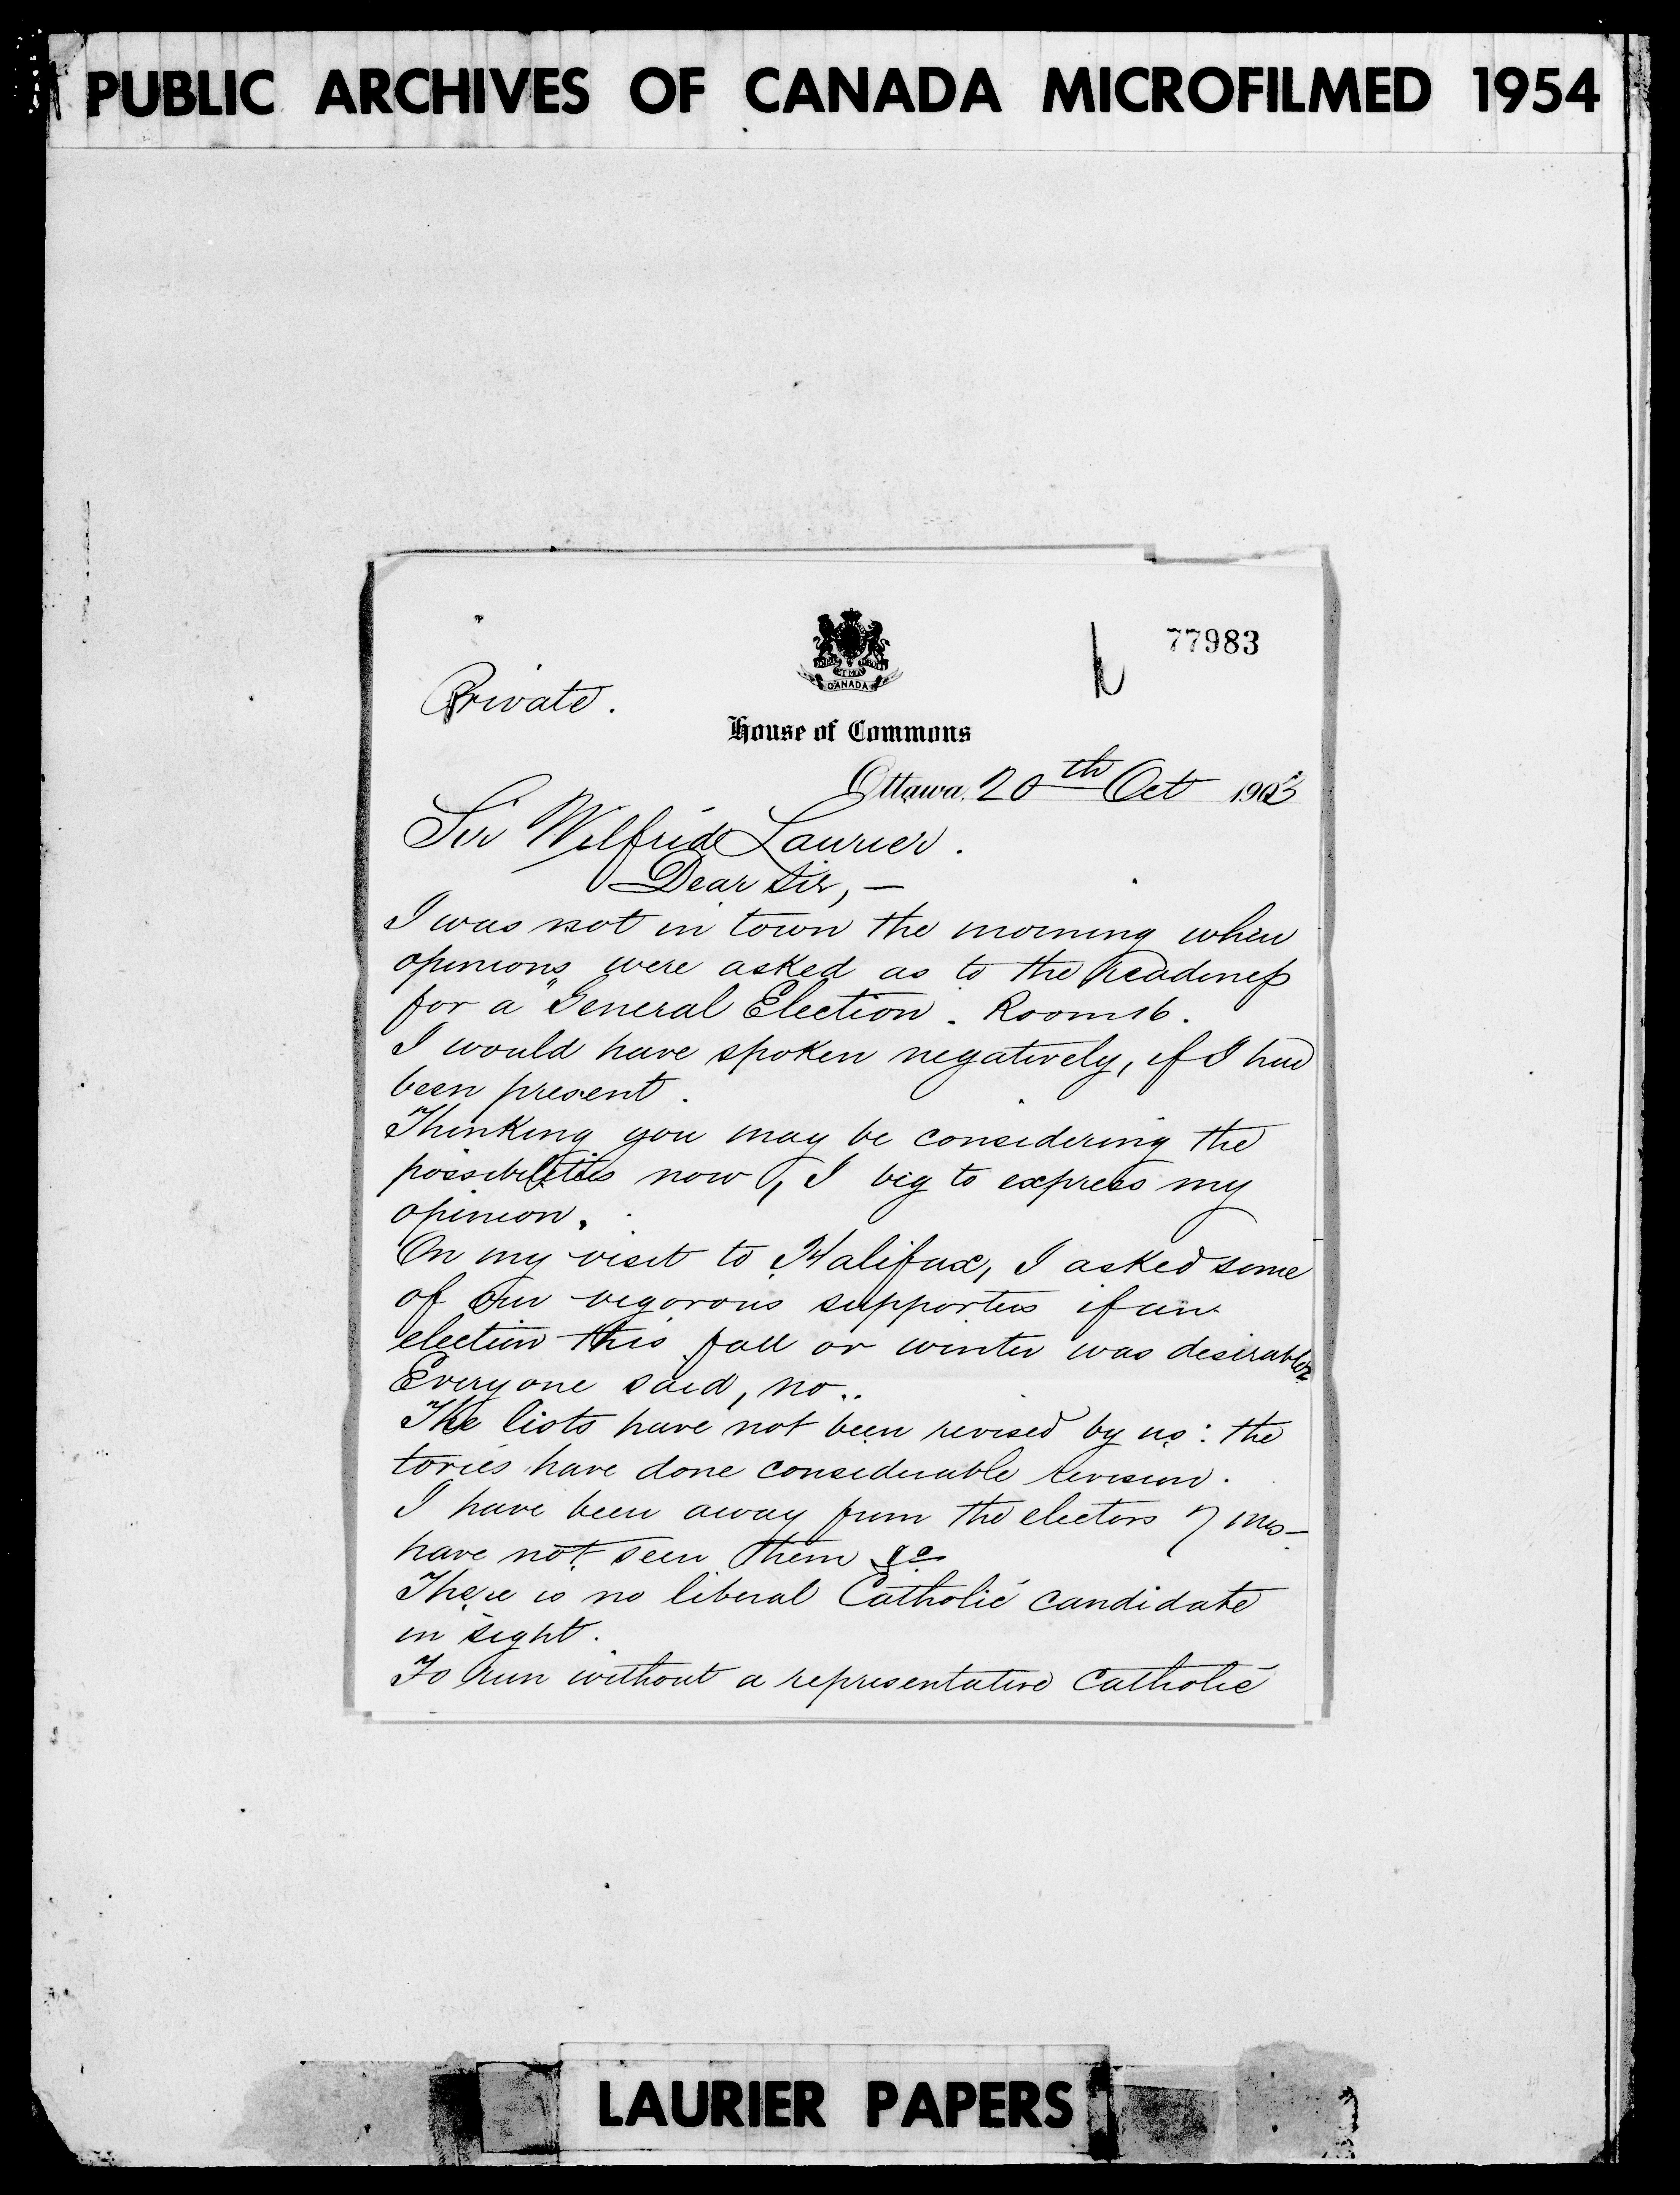 PUBLIC ARCHIVES OF CANADA MICROFILMED 1954
77983
CANADA
Private.
House of Commons
Ottawa, 20th Oct 1903
Sir Wilfrid Laurier.
Dear Sir, —
I was not in town the morning when
opinions were asked as to the readiness
for a General Election. Room 16.
I would have spoken negatively, if I had
been present.
Thinking you may be considering the
possibilities now, I beg to express my
opinion.
On my visit to Halifax, I asked some
of our vigorous supporters if an
election this fall or winter was desirable.
Everyone said, no..
The lists have not been revised by us: the
tories have done considerable revision.
I have been away from the electors 7 mos—
have not seen them &c
There is no liberal Catholic candidate
in sight.
To run without a representative Catholic
LAURIER PAPERS